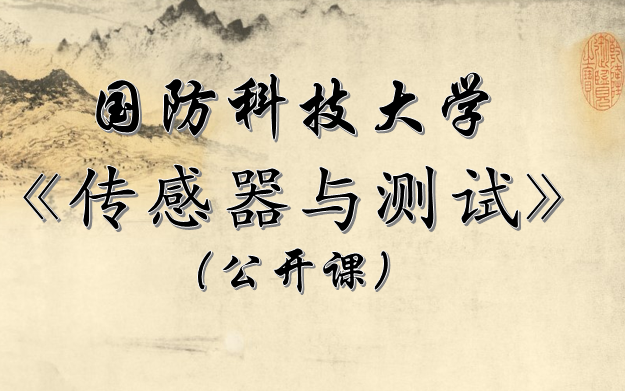 国防科技大学
《传感器与测试》
（公开课）